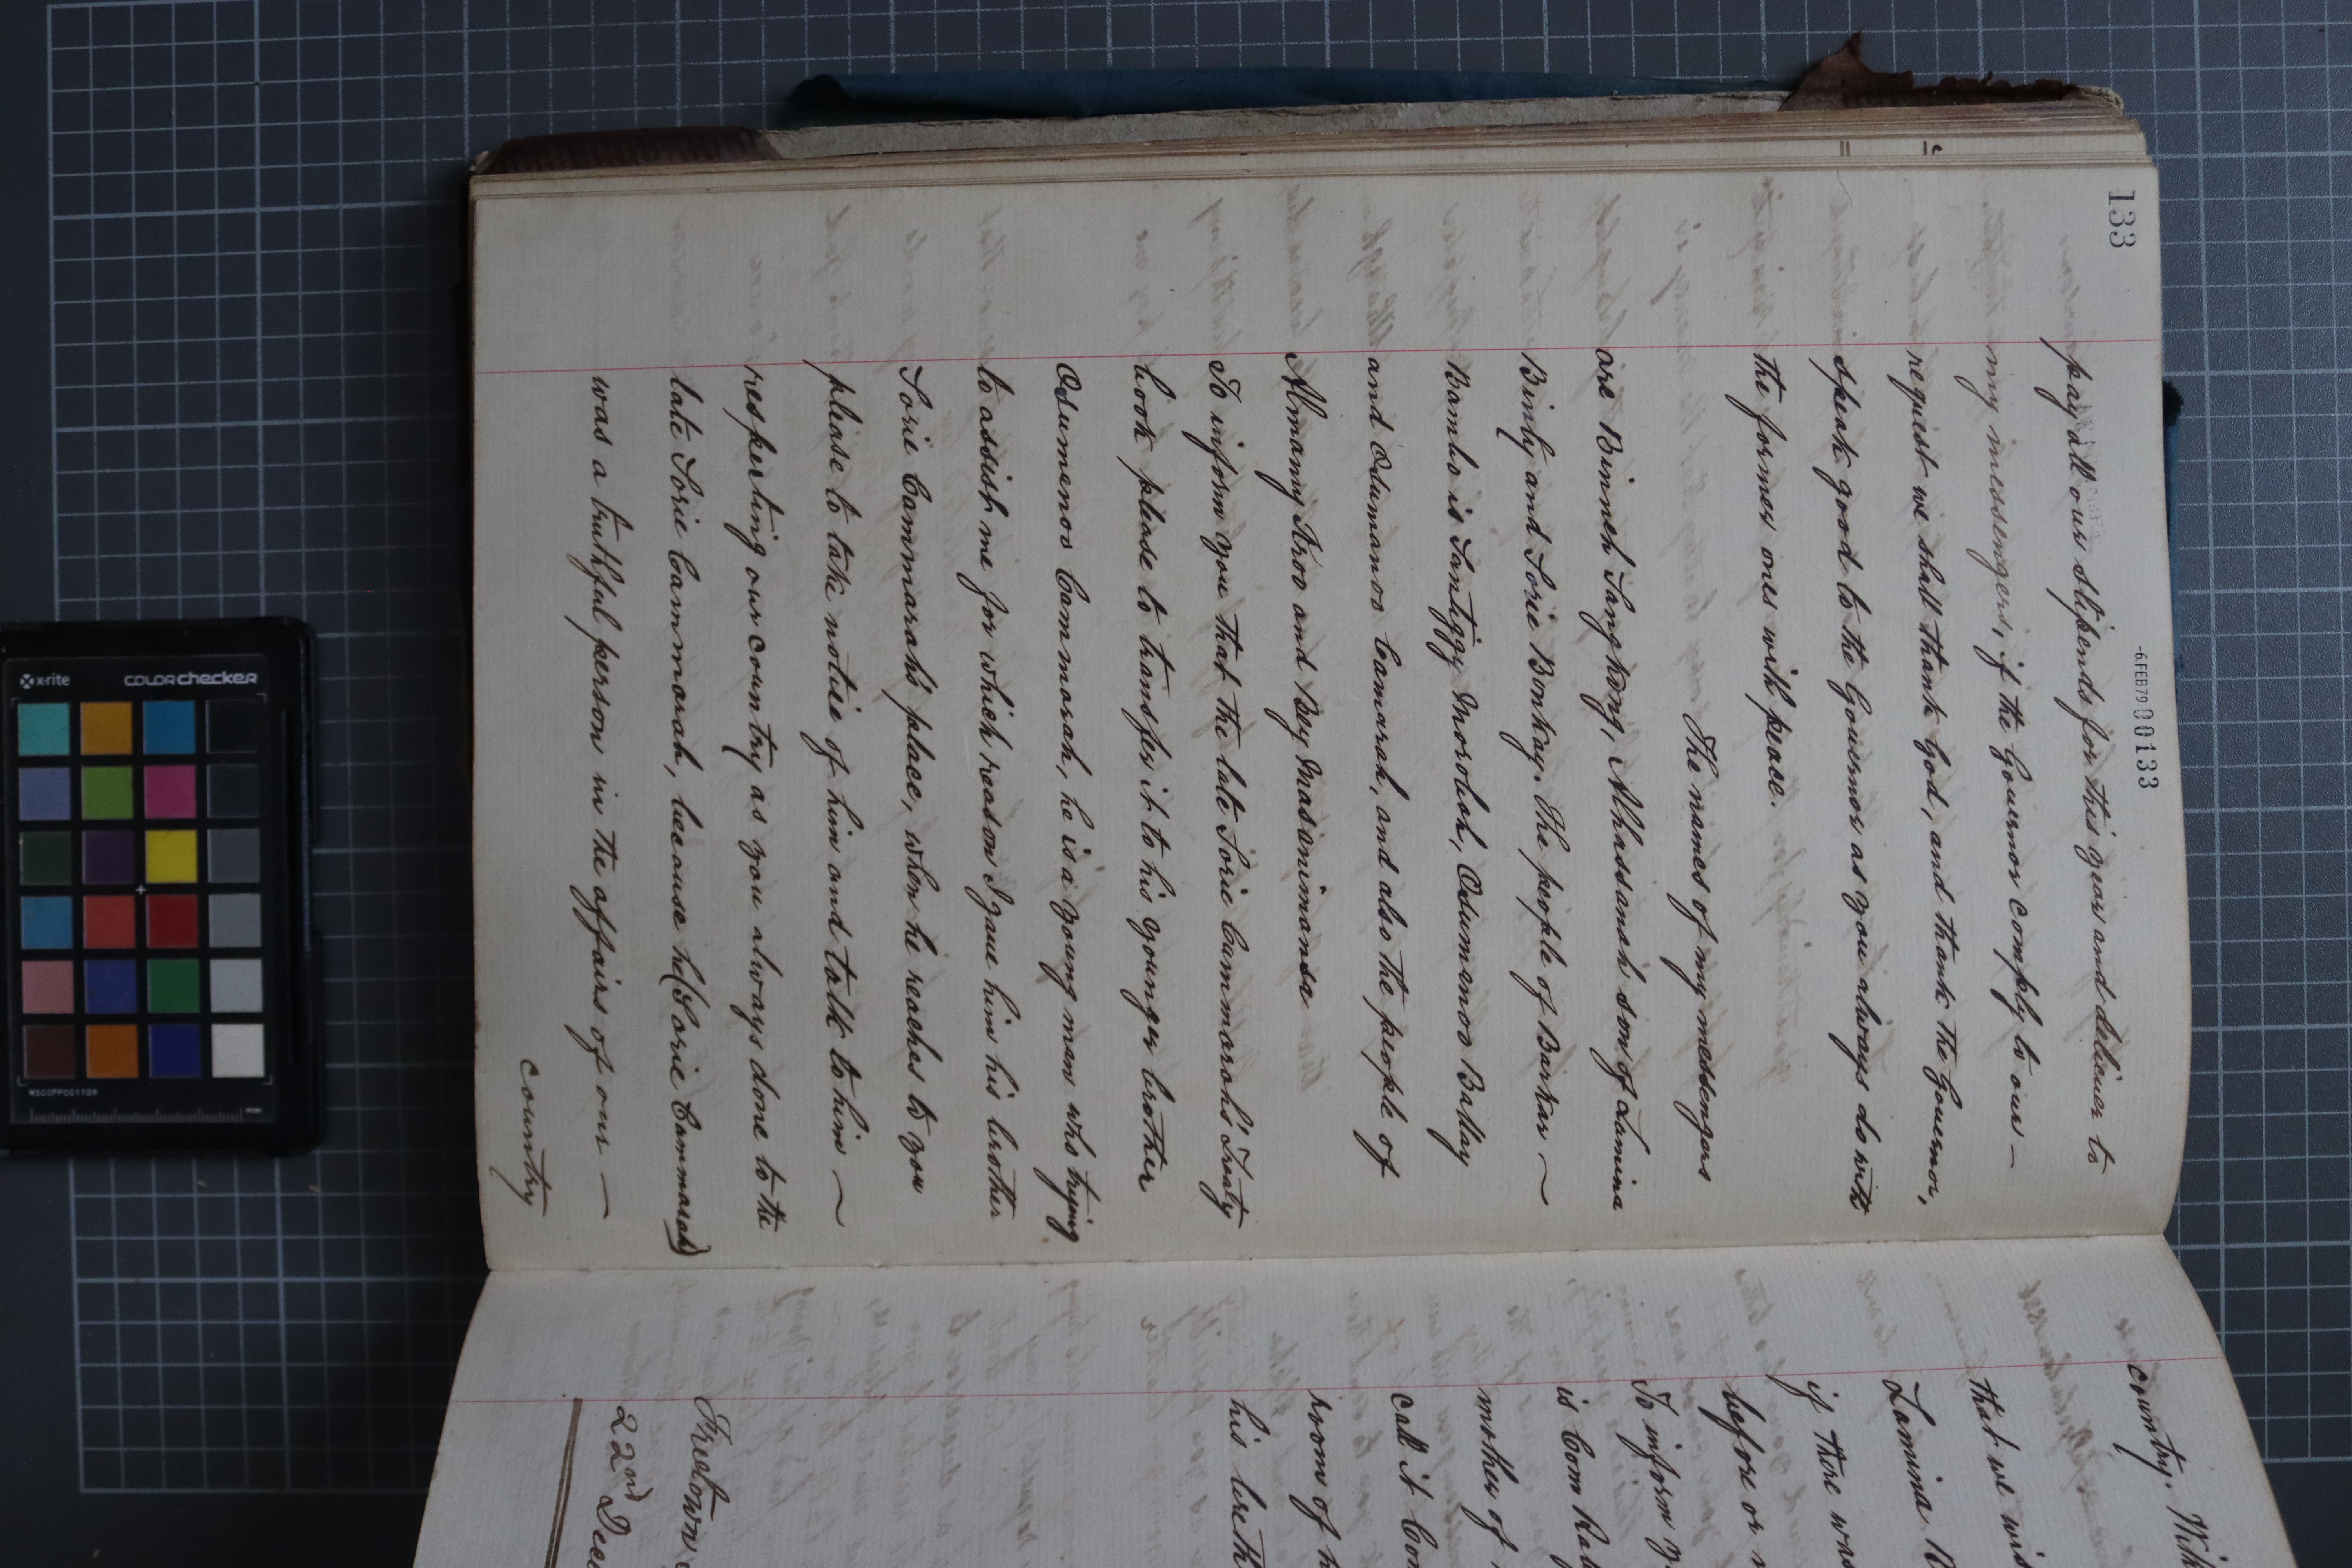 133
-6.FEB79 000133
pay all our stipends for this year and deliver to
my messengers, if the Governor comply to our —
request we shall thank God, and thank the Governor,
speak good to the Governor as you always do with
the former ones with peace.
The names of my messengers
are Binneh Sanghong, Alhassanah son of Lamina
Binly and Sorie Bonkay. The people of Barkar —
Bambo is Santiggy Morobah, Odumenoo Ballay
and Odumanoo Camarah, and also the people of
Almamy Aroo and Bey Masimimansa
To inform you that the late Sorie Cammarahs' Treaty
book please to transfer it to his younger brother
Odumenoo Cammarah, he is a young man who trying
to assist me for which reason I gave him his brother
Sorie Cammarahs' place, when he reaches to you
please to take notice of him and talk to him —
respecting our country as you always done to the
late Sorie Cammarah, because he (Sorie Cammarah)
was a truthful person in the affairs of our —
country
country.
that we
Lamina
if there was
before or
To inform
is Com
mother of
call it
room of
his
Freetown
22nd Dec
x-rite
colorchecker
MSCCPPCC1109